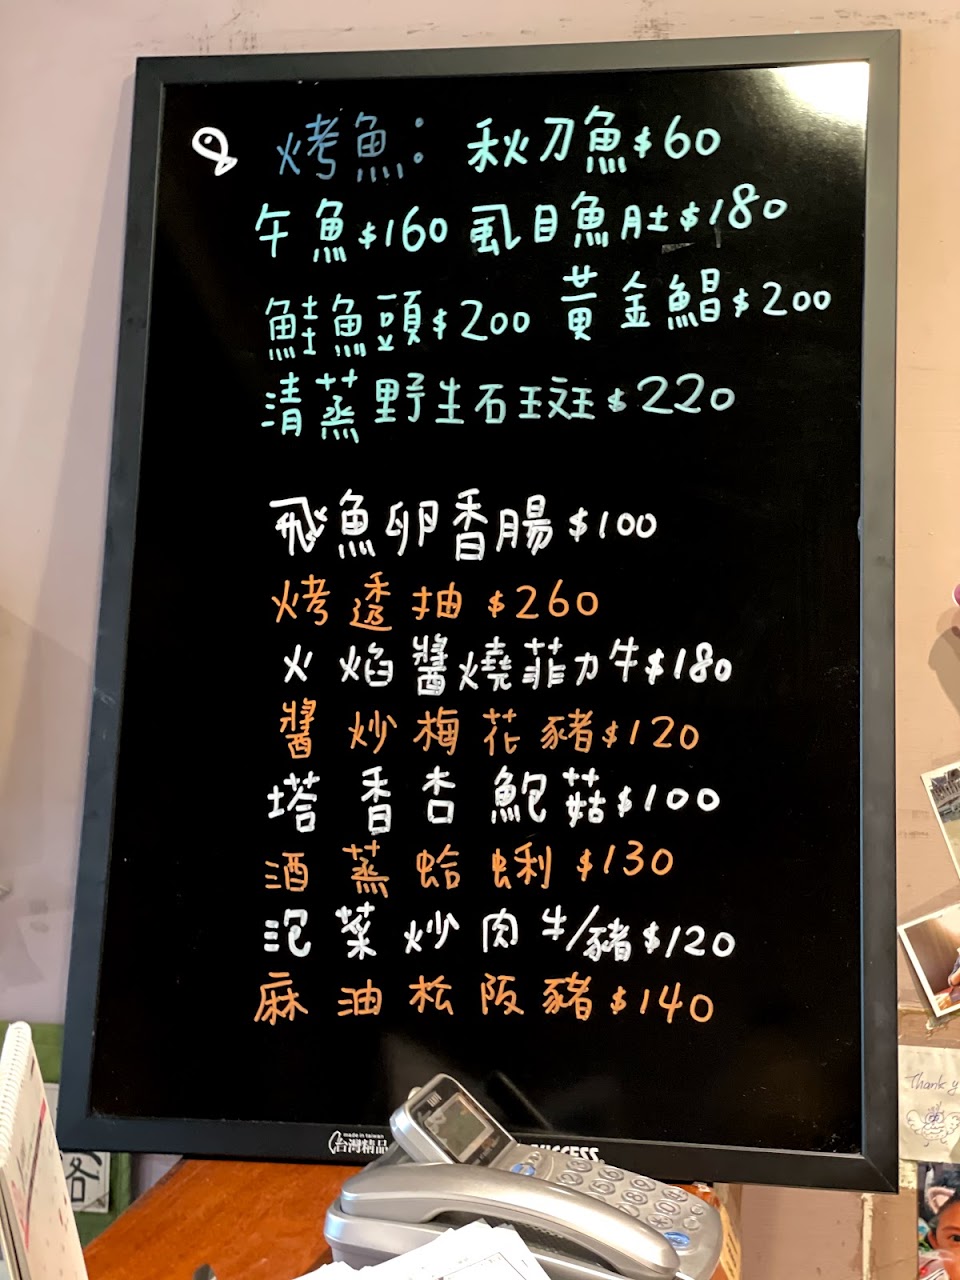 烤魚: 秋刀魚$60
午魚$160 虱目魚肚$180
鮭魚頭$200 黃金鯧$200
清蒸野生石斑$220
飛魚卵香腸$100
烤透抽 $260
火焰醬燒菲力牛$180
醬炒梅花豬$120
塔香杏鮑菇$100
酒蒸蛤蜊$130
泡菜炒肉牛/豬$120
麻油松阪豬$140
made in taiwan
台灣精品
Thank y